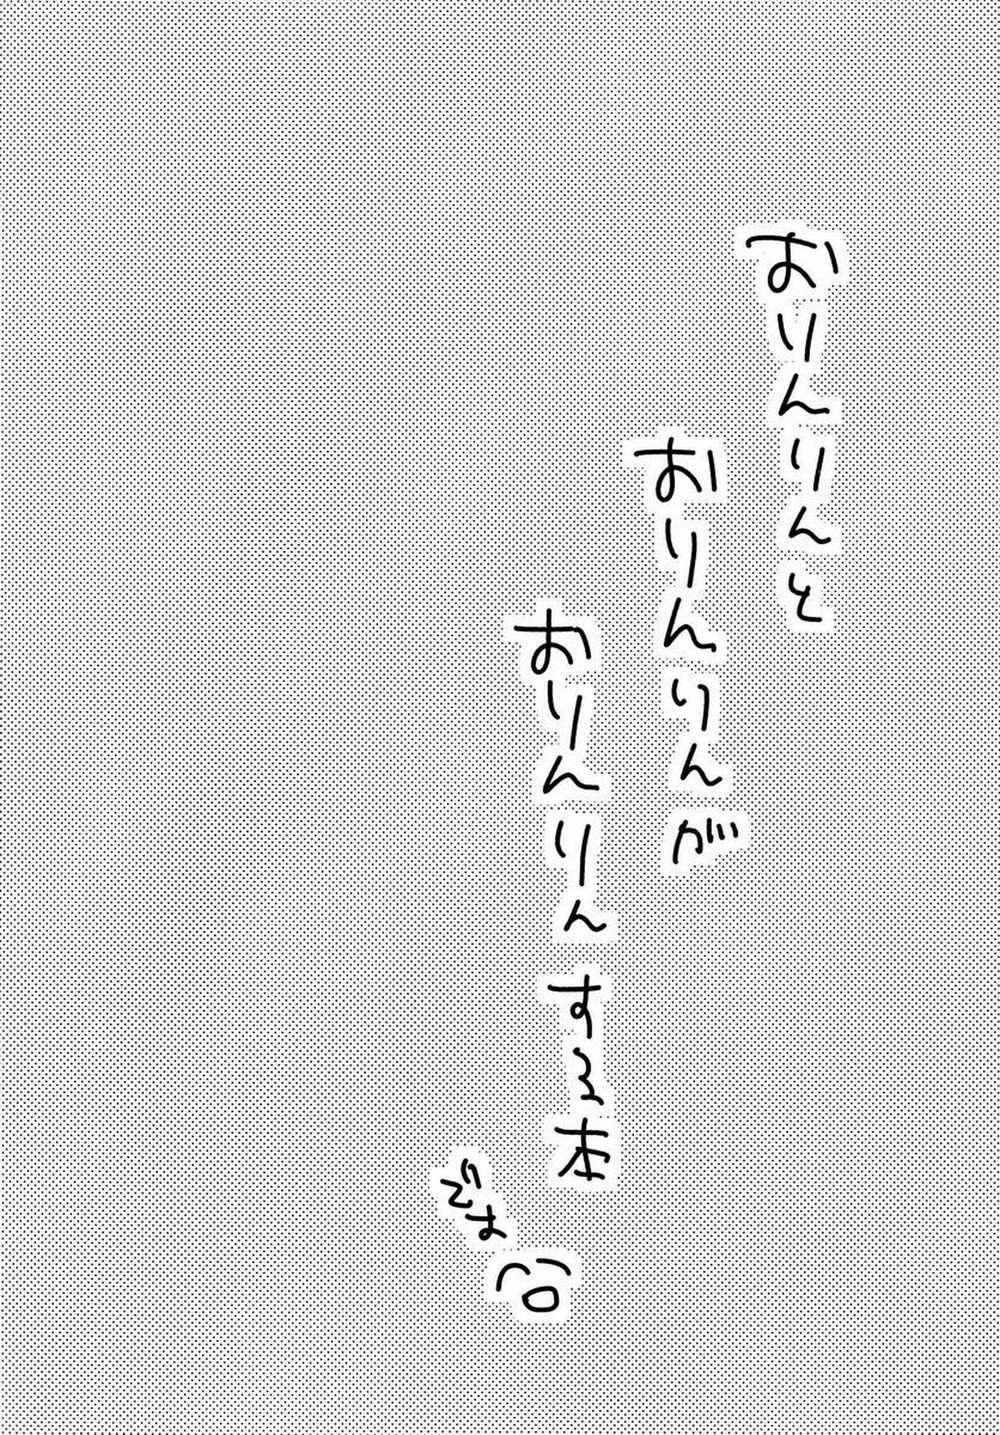 おりんりんと
おりんりんが
おりんりんする本